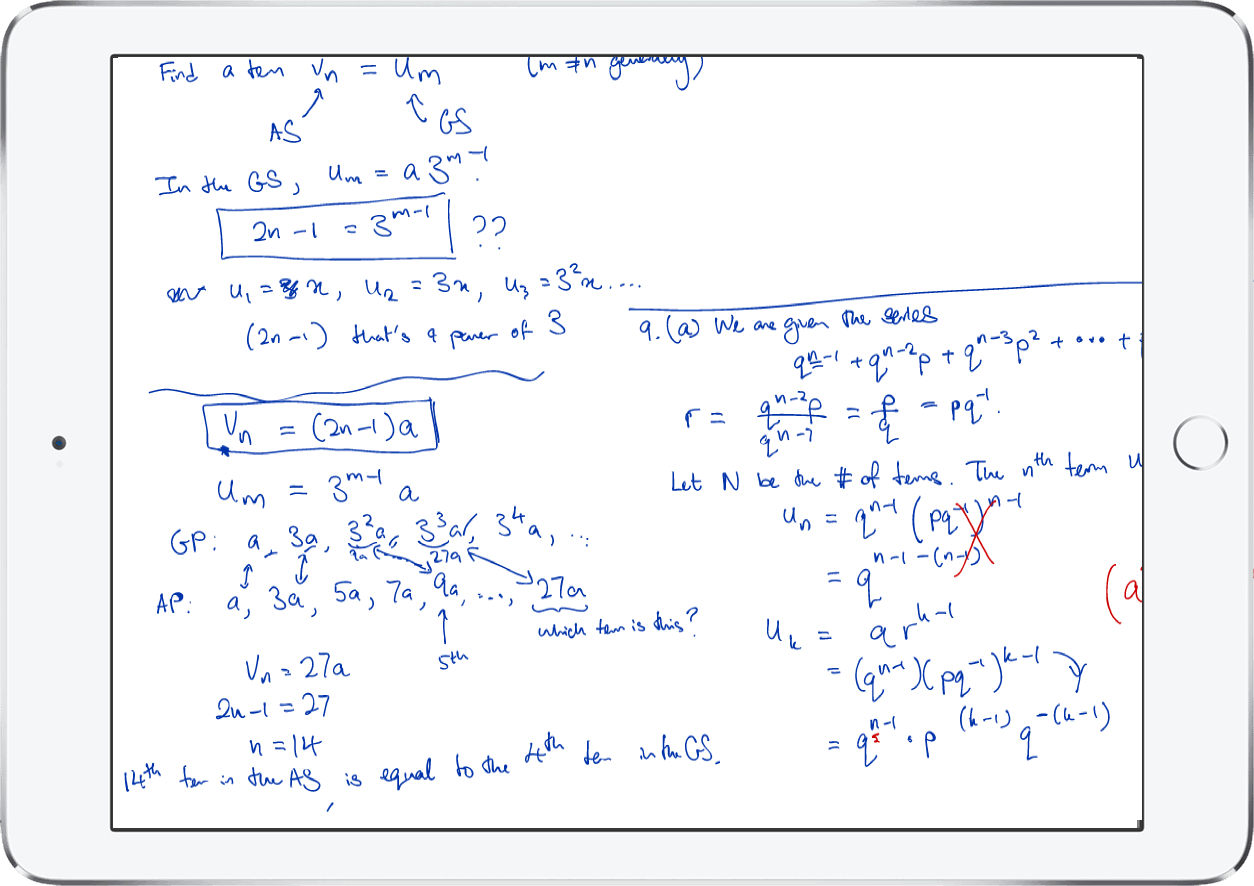 Find a term Vn = Um (m ≠ n generally)
AS GS
In the GS, Um = a 3^(m-1).
2n - 1 = 3^(m-1) ??
u₁ = x, u₂ = 3x, u₃ = 3²x....
(2n-1) that's a power of 3
Vn = (2n-1)a
Um = 3^(m-1) a
GP: a, 3a, 3²a, 3³a, 3⁴a, ...
9a 27a
AP: a, 3a, 5a, 7a, 9a, ..., 27a
which term is this?
5th
Vn = 27a
2n-1 = 27
n = 14
14th term in the AS, is equal to the 4th term in the GS.
9. (a) We are given the series
q^(n-1) + q^(n-2)p + q^(n-3)p² + ... +
r = q^(n-2)p / q^(n-1) = p/q = pq^(-1).
Let N be the # of terms. The nth term u
Un = q^(n-1) (pq^(-1))^(n-1)
= q^(n-1-(n-1))
(a
U_k = a r^(k-1)
= (q^(n-1))(pq^(-1))^(k-1)
= q^(n-1) · p^(k-1) q^(-(k-1))